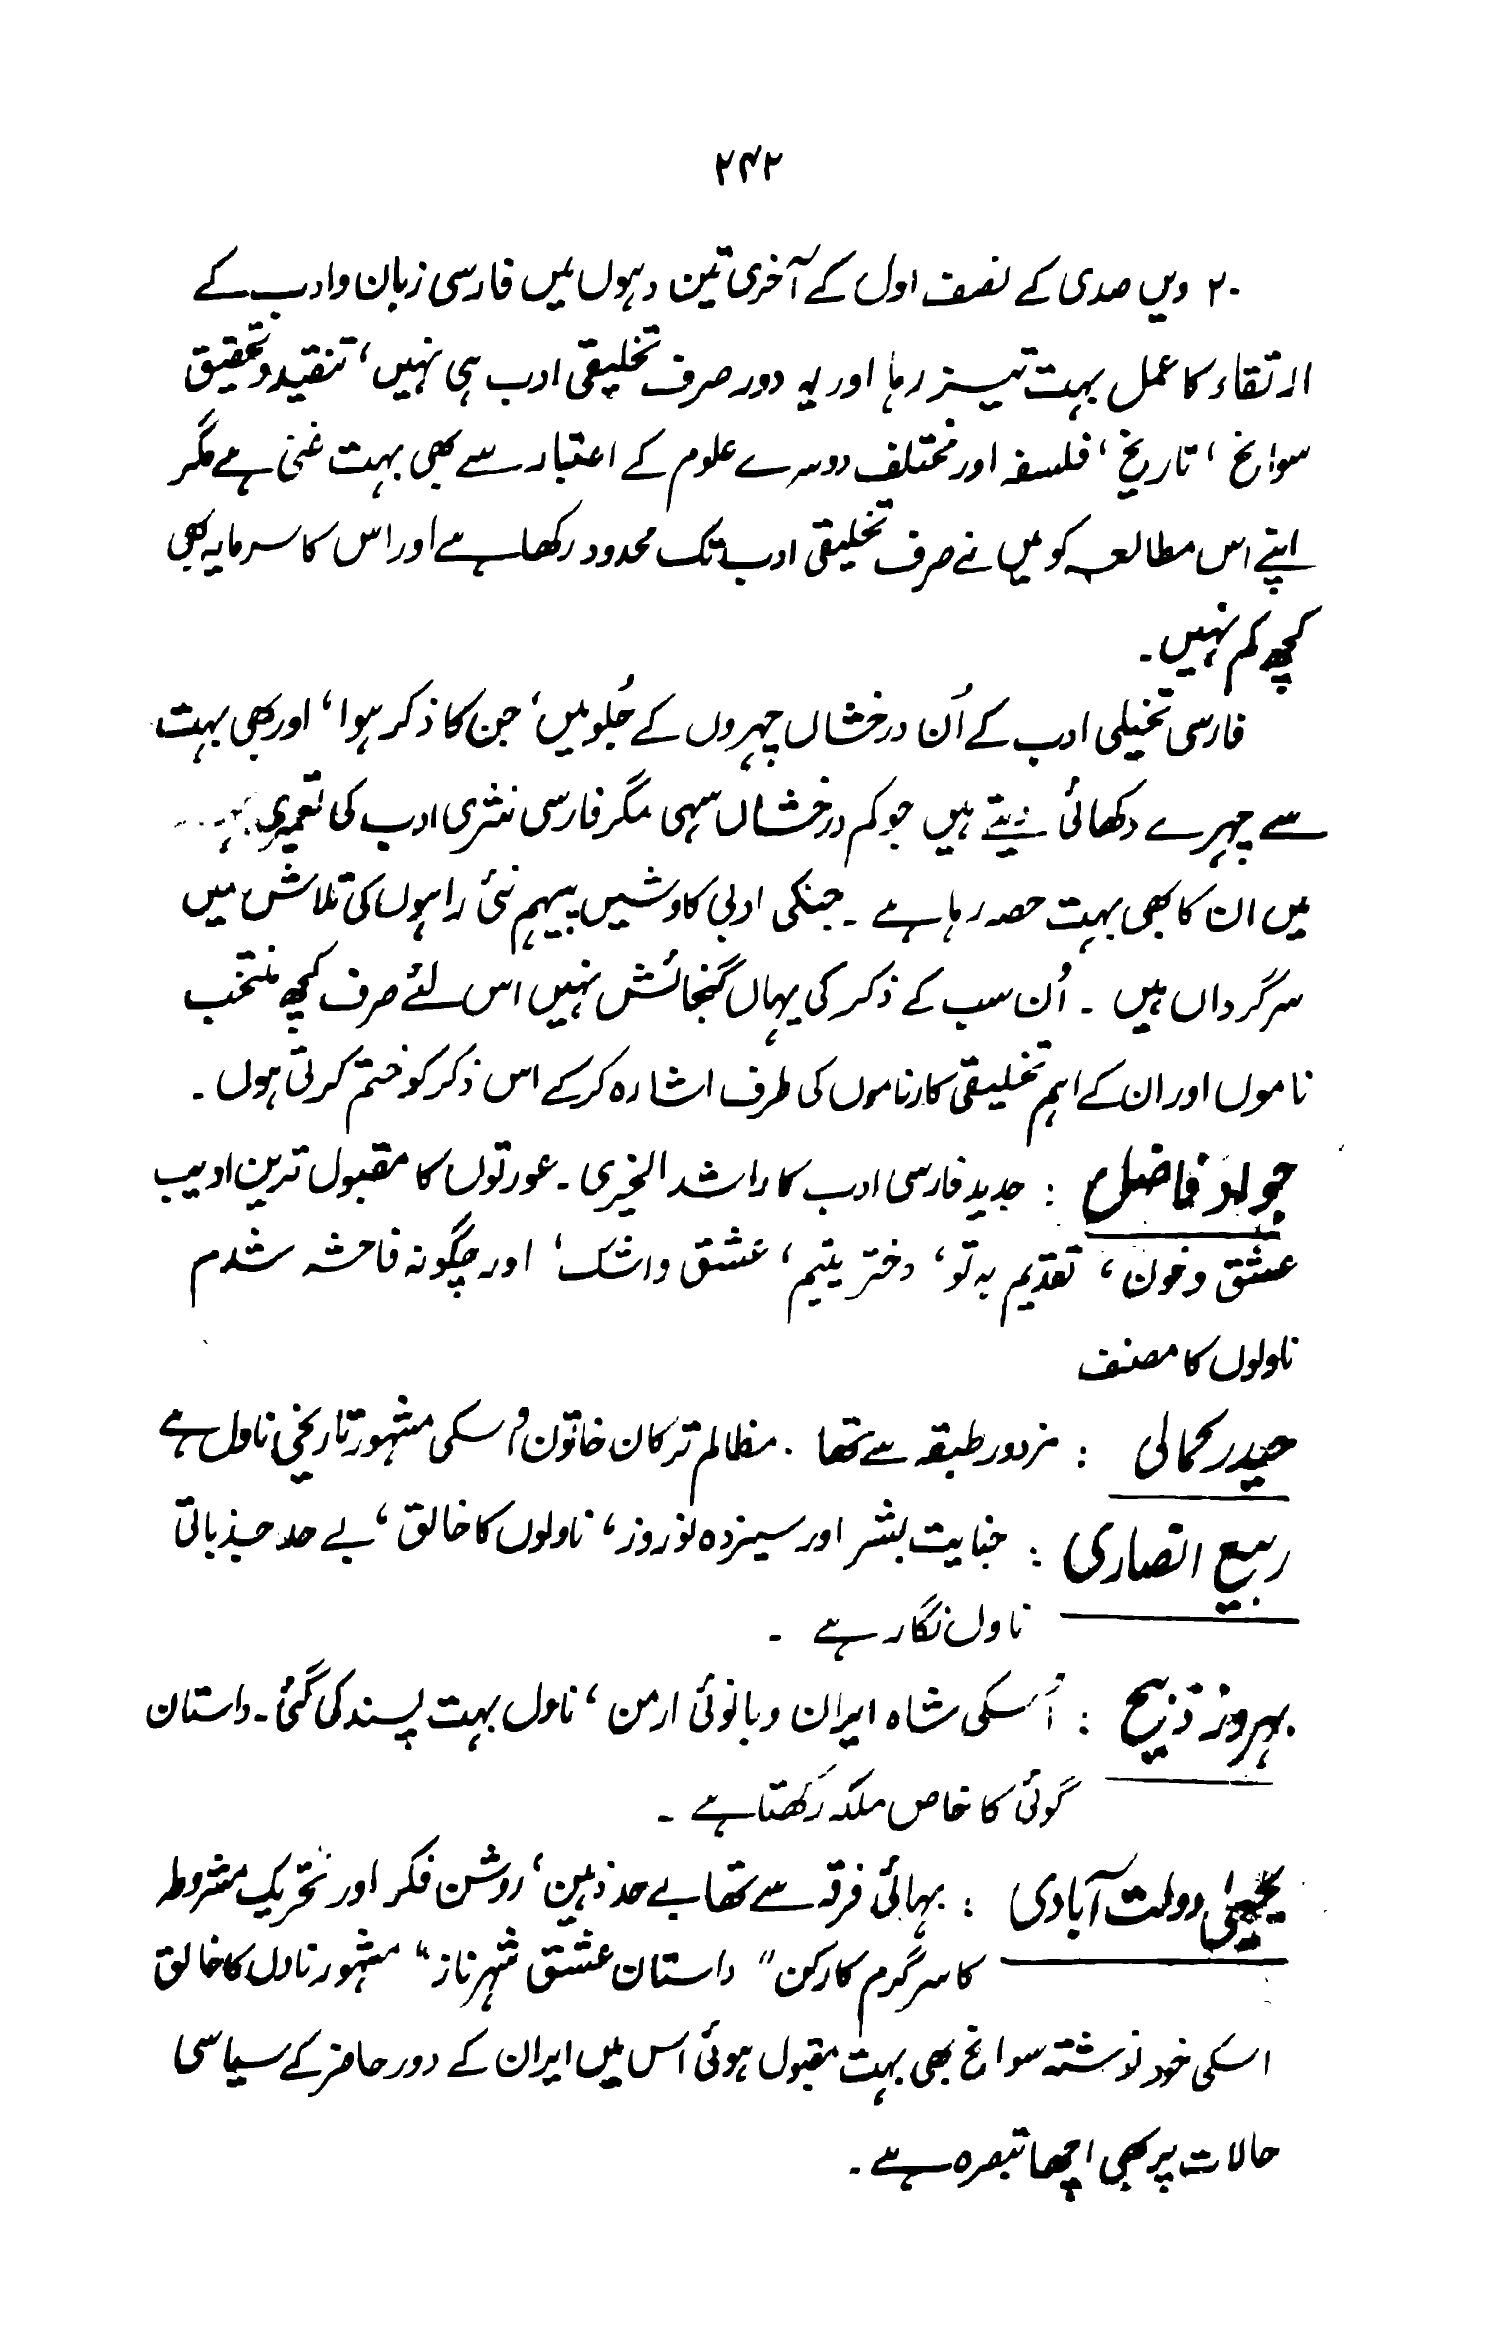 ۲۴۲
۲۰ ویں صدی کے نصف اول کے آخری تین دہوں میں فارسی زبان و ادب کے
ارتقاء کا عمل بہت تیز رہا اور یہ دور صرف تخلیقی ادب ہی نہیں، تنقید و تحقیق
سوانح، تاریخ، فلسفہ اور مختلف دوسرے علوم کے اعتبار سے بھی بہت غنی ہے مگر
اپنے اس مطالعہ کو میں نے صرف تخلیقی ادب تک محدود رکھا ہے اور اس کا سرمایہ بھی
کچھ کم نہیں۔
فارسی تخیلی ادب کے اُن درخشاں چہروں کے جُلو میں، جن کا ذکر ہوا، اور بھی بہت
سے چہرے دکھائی دیتے ہیں جو کم درخشاں سہی مگر فارسی نثری ادب کی تعمیر
میں ان کا بھی بہت حصہ رہا ہے ۔ جنکی ادبی کاوشیں پیہم نئی راہوں کی تلاش میں
سرگرداں ہیں ۔ اُن سب کے ذکر کی یہاں گنجائش نہیں اس لئے صرف کچھ منتخب
ناموں اور ان کے اہم تخلیقی کارناموں کی طرف اشارہ کر کے اس ذکر کو ختم کرتی ہوں ۔
جواد فاضل : جدید فارسی ادب کا راشد الخیری ۔ عورتوں کا مقبول ترین ادیب
عشق و خون، تقدیم بہ تو، دختر یتیم، عشق و اشک، اور چگونہ فاحشہ شدم
ناولوں کا مصنف
حیدر کمالی : مزدور طبقہ سے تھا ۔ مظالم ترکان خاتون اسکی مشہور تاریخی ناول ہے
ربیع انصاری : جنایت بشر اور سیزدہ نوروز، ناولوں کا خالق، بے حد جذباتی
ناول نگار ہے ۔
بہروز ذبیح : اُسکی شاہ ایران و بانوئی ارمن، ناول بہت پسند کی گئی ۔ داستان
گوئی کا خاص ملکہ رکھتا ہے ۔
یحییٰ دولت آبادی : بہائی فرقہ سے تھا بے حد ذہین، روشن فکر اور تحریک مشروطہ
کا سرگرم کارکن "داستان عشق شہرناز" مشہور ناول کا خالق
اسکی خود نوشتہ سوانح بھی بہت مقبول ہوئی اس میں ایران کے دور حاضر کے سیاسی
حالات پر بھی اچھا تبصرہ ہے ۔